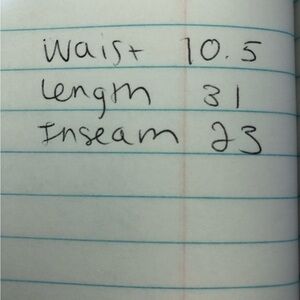 Waist 10.5
Length 31
Inseam 23